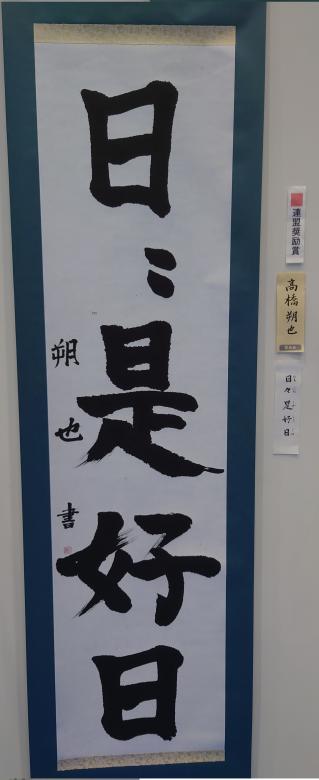 日〻是好日
朔也書
連盟奨励賞
高橋朔也
日々是好日